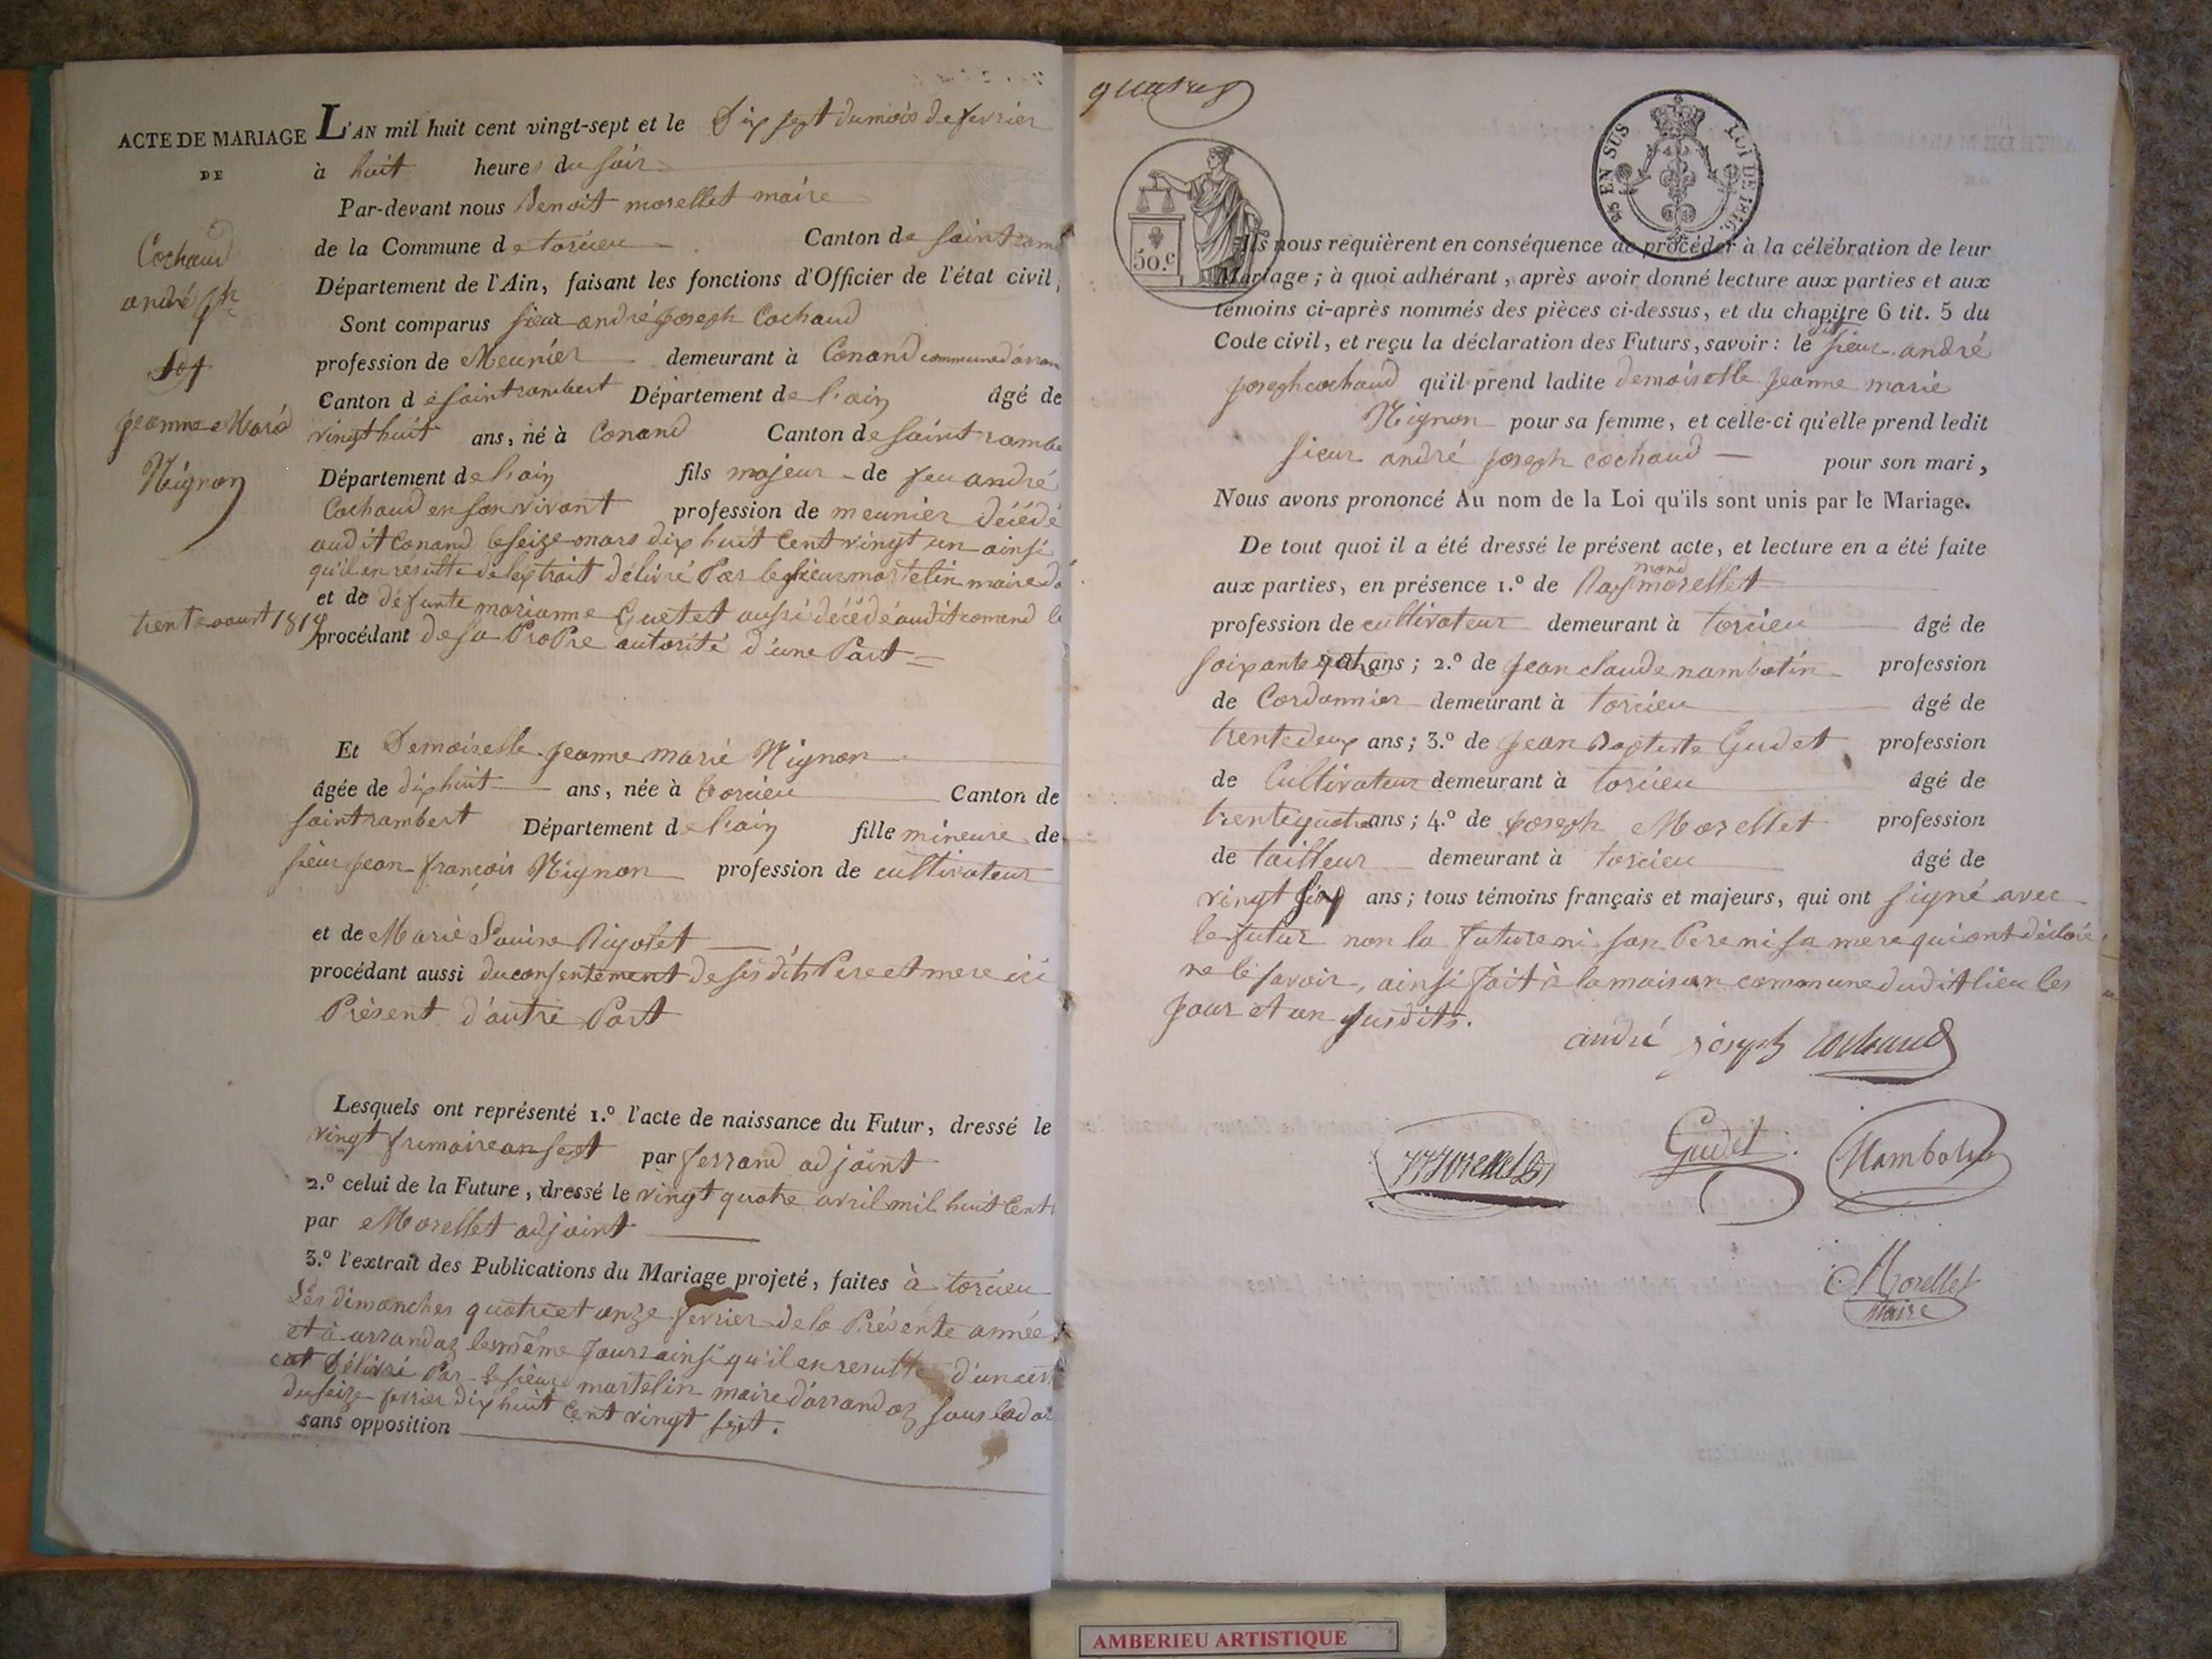 ACTE DE MARIAGE
DE
Cochaud
andré Jph
Et
Jeanne Marie
Mignon
trente aoust 1814
L'AN mil huit cent vingt-sept et le Dix sept du mois de fevrier
à huit heures du soir
Par-devant nous Benoit morellet maire
de la Commune de torcieu Canton de saint ramb
Département de l'Ain, faisant les fonctions d'Officier de l'état civil,
Sont comparus sieur andré Joseph Cochaud
profession de Meunier demeurant à Conand commune d'arran
Canton de saint rambert Département de l'ain âgé de
vingt huit ans, né à Conand Canton de saint rambe
Département de l'ain fils majeur de feu andré
Cochaud en son vivant profession de meunier décédé
audit Conand le seize mars dix huit Cent vingt un ainsi
qu'il en résulte de l'extrait délivré Par le sieur martelin maire
et de défunte marianne Guetet aussi décédé audit conand le
procédant de sa ProPre autorité d'une Part
Et Demoiselle Jeanne marie Mignon
âgée de dix huit ans, née à torcieu Canton de
saint rambert Département de l'ain fille mineure de
sieur Jean françois Mignon profession de cultivateur
et de Marie Louise Rigolet
procédant aussi du consentement de ses dits Pere et mere ici
Présent d'autre Part
Lesquels ont représenté 1.º l'acte de naissance du Futur, dressé le
vingt frimaire an sept par ferrand adjoint
2.º celui de la Future, dressé le vingt quatre avril mil huit Cent
par Morellet adjoint
3.º l'extrait des Publications du Mariage projeté, faites à torcieu
Les dimanches quatre et onze fevrier de la Présente année
et à arrandaz les même Jours ainsi qu'il en resulte d'un cert
cat Délivré Par le sieur martelin maire d'arrandaz sous la dat
du seize fevrier dix huit Cent vingt sept.
sans opposition
quatre
50.c
25 EN SUS
LOI DE 1816.
Ils nous requièrent en conséquence de procéder à la célébration de leur
Mariage; à quoi adhérant, après avoir donné lecture aux parties et aux
témoins ci-après nommés des pièces ci-dessus, et du chapitre 6 tit. 5 du
Code civil, et reçu la déclaration des Futurs, savoir: le dit sieur andré
Joseph cochaud qu'il prend ladite demoiselle Jeanne marie
Mignon pour sa femme, et celle-ci qu'elle prend ledit
sieur andré Joseph cochaud pour son mari,
Nous avons prononcé Au nom de la Loi qu'ils sont unis par le Mariage.
De tout quoi il a été dressé le présent acte, et lecture en a été faite
aux parties, en présence 1.º de Raymond morellet
profession de cultivateur demeurant à torcieu âgé de
soixante quatre ans; 2.º de Jean claude nambotin profession
de Cordonnier demeurant à torcieu âgé de
trente deux ans; 3.º de Jean Baptiste Gudet profession
de Cultivateur demeurant à torcieu âgé de
trente quatre ans; 4.º de Joseph Morellet profession
de tailleur demeurant à torcieu âgé de
vingt six ans; tous témoins français et majeurs, qui ont signé avec
le futur non la future ni son Pere ni sa mere qui ont déclaré
ne le savoir, ainsi fait à la maison commune dudit lieu les
Jour et an susdits.
andré joseph cochaud
Morellet
Gudet
Nambotin
Morellet
maire
AMBERIEU ARTISTIQUE